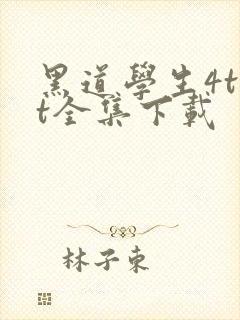 黑道學生4t
t全集下載
林子東